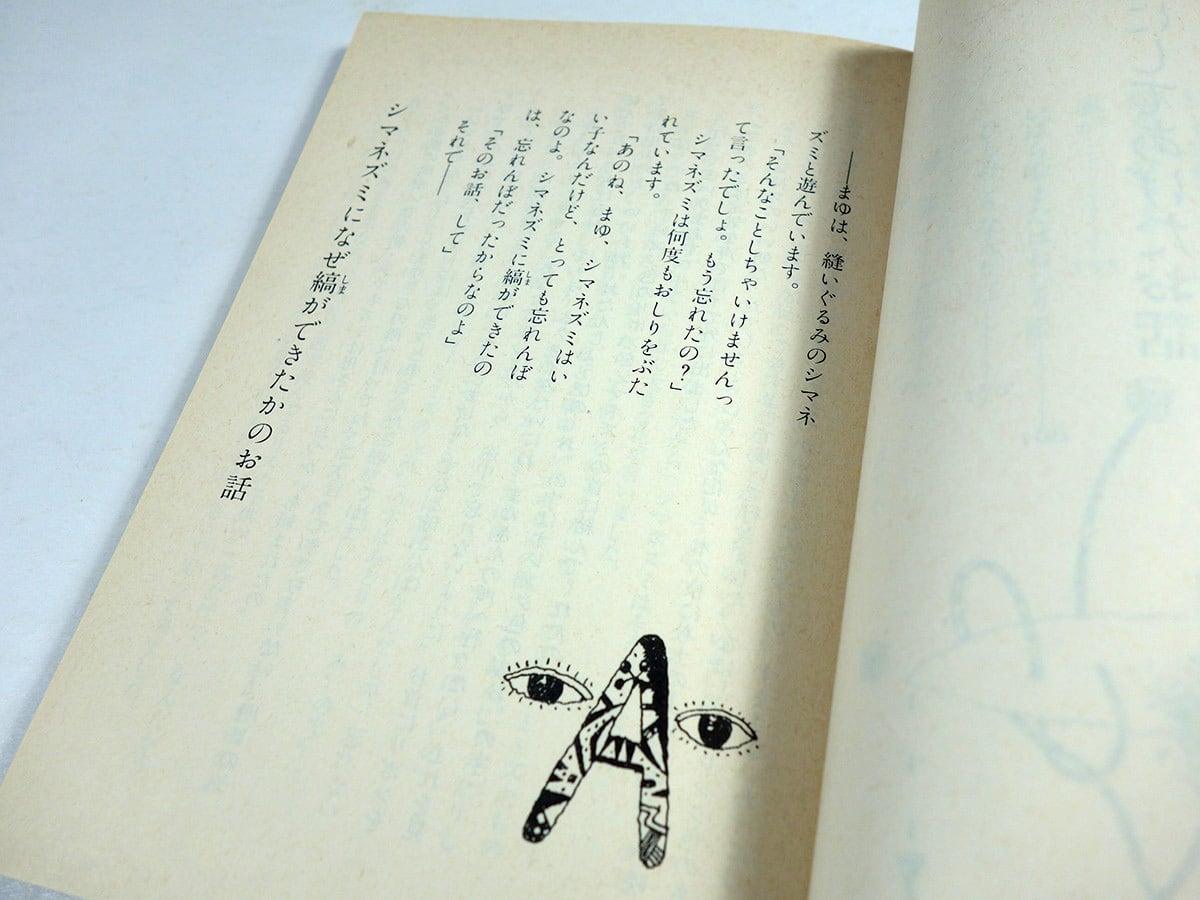 ――まゆは、縫いぐるみのシマネ
ズミと遊んでいます。
「そんなことしちゃいけませんっ
て言ったでしょ。もう忘れたの？」
シマネズミは何度もおしりをぶた
れています。
「あのね、まゆ、シマネズミはい
い子なんだけど、とっても忘れんぼ
なのよ。シマネズミに縞しまができたの
は、忘れんぼだったからなのよ」
「そのお話、して」
それで――
シマネズミになぜ縞しまができたかのお話
A